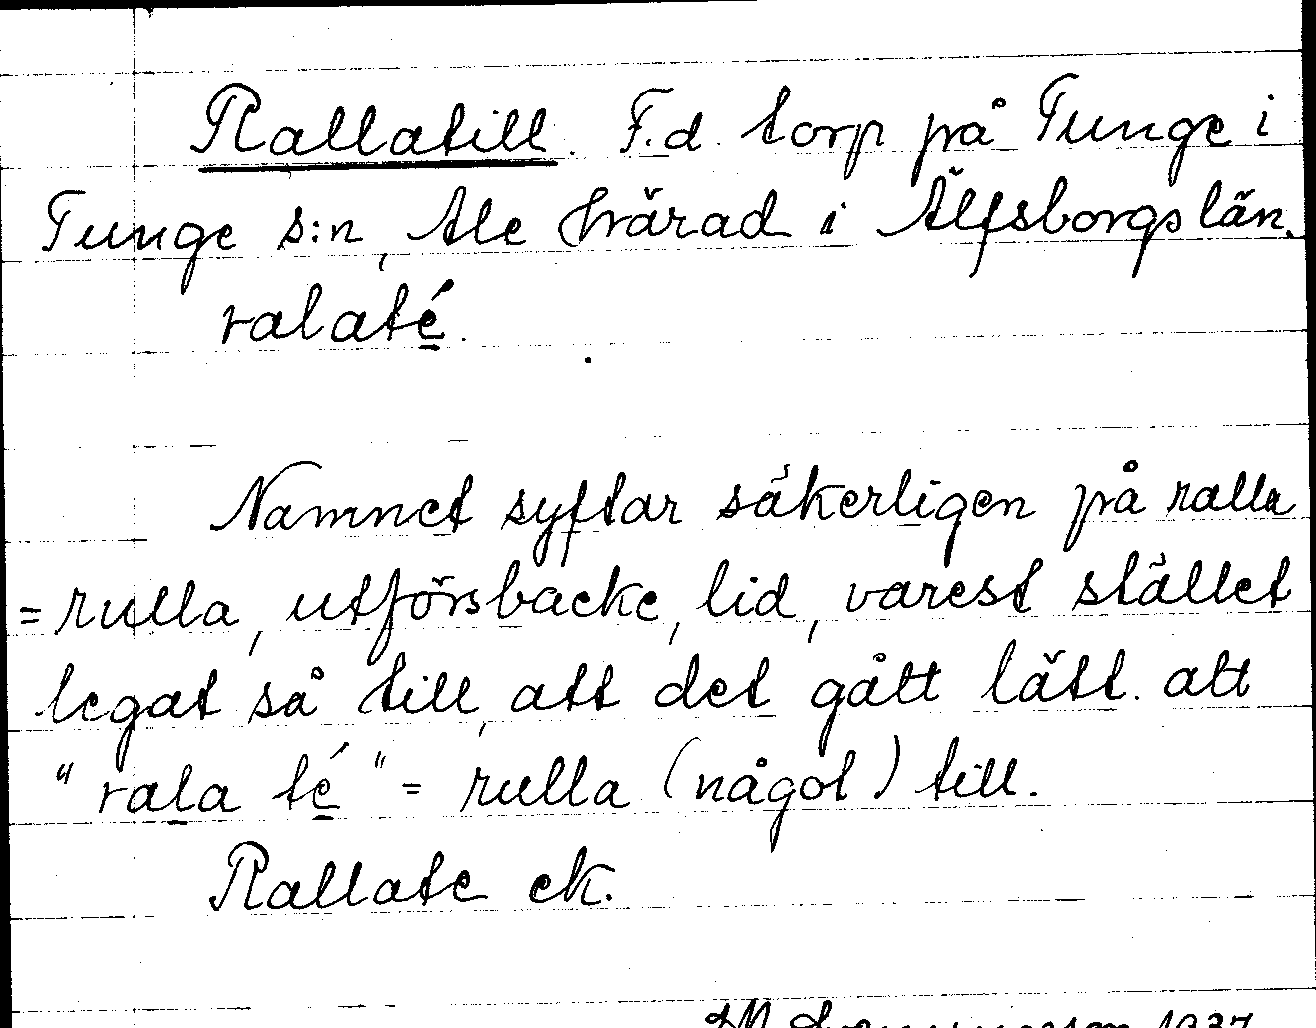 Rallatill. F.d. torp på Tunge i
Tunge s:n, Ale härad i Älfsborgs län.
ralaté.
Namnet syftar säkerligen på ralla
= rulla, utförsbacke, lid, varest stället
legat så till, att det gått lätt att
"rala té" = rulla (något) till.
Rallate ek.
1937